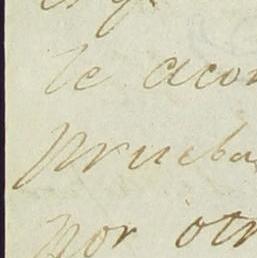 te acor
prueba
por otr